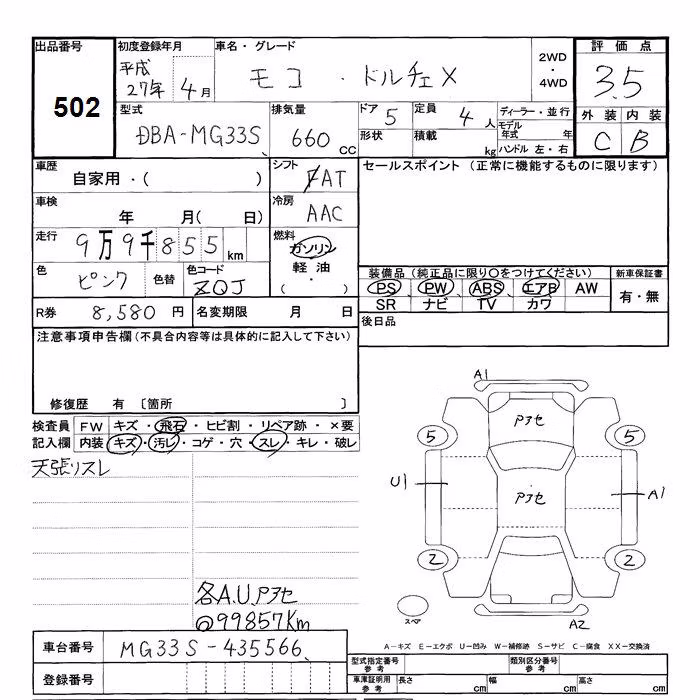 出品番号
502
初度登録年月
平成
27年 4月
車名・グレード
モコ ・ ドルチェX
2WD
・
4WD
評価点
3.5
外装 内装
C B
型式
DBA-MG33S
排気量
660 CC
ドア 5
定員 4 人
形状
積載 kg
ディーラー・並行
モデル
年式 年
ハンドル 左・右
車歴
自家用・( )
シフト
FAT
セールスポイント (正常に機能するものに限ります)
車検
年 月( 日)
冷房
AAC
走行
9万9千855km
燃料
ガソリン
軽油
( ・ )
色
ピンク
色替
色コード
ZQJ
装備品(純正品に限り○をつけてください)
PS PW ABS エアB AW
SR ナビ TV カワ
新車保証書
有・無
R券 8,580 円
名変期限 月 日
後日品
注意事項申告欄(不具合内容等は具体的に記入して下さい)
修復歴 有 〔箇所 〕
検査員
記入欄
FW キズ・飛石・ヒビ割・リペア跡・×要
内装 キズ・汚レ・コゲ・穴・スレ・キレ・破レ
天張リスレ
各A.U.アセ
@99857Km
A1
アセ
5 5
U1
アセ
A1
2 2
スペア
A2
A－キズ E－エクボ U－凹み W－補修跡 S－サビ C－腐食 XX－交換済
車台番号 MG33S-435566
登録番号
型式指定番号
参考
類別区分番号
参考
車庫証明用
参考
長さ cm 幅 cm 高さ cm